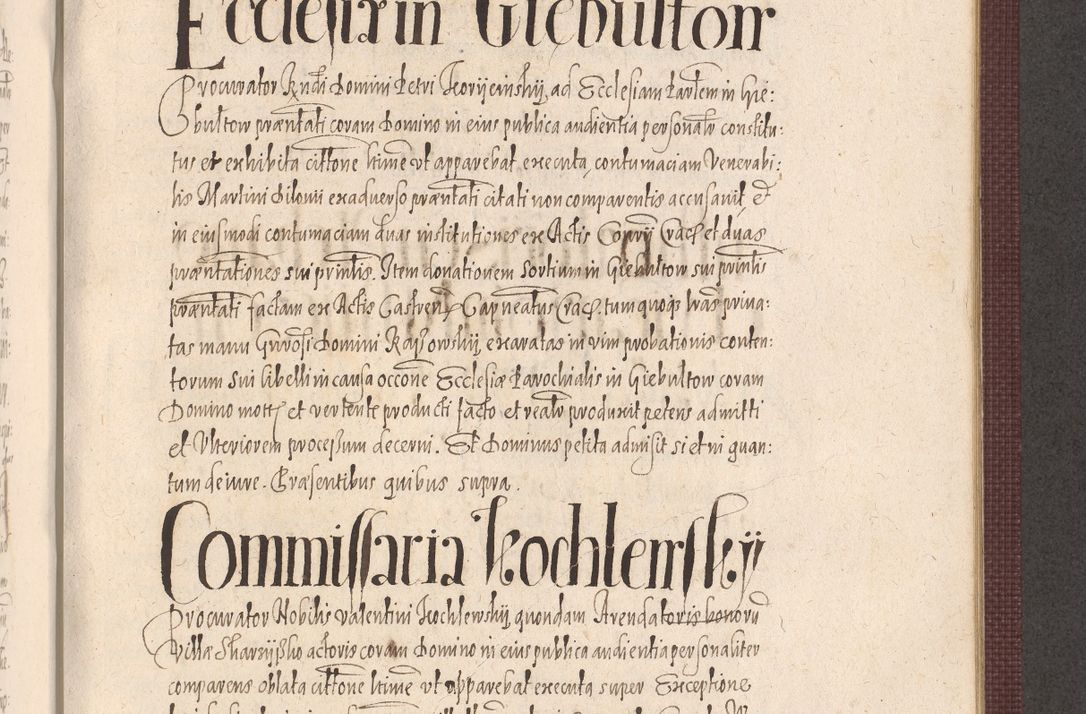 Ecclesiæ in Giebultow
Procurator Rndi Domini Petri Koryeinskij, ad Ecclesiam Parlem in Gie:
bultow præntati coram Domino in eius publica audientia personalr constitu:
tus et exhibita cittone ltime vt apparebat executa, contumaciam Venerabi:
lis Martini Silouii exaduerso præntati citati non comparentis accusauit et
in eiusmodi contumaciam duas institutiones ex Actis Conrij Crach et duas
præntationes sui printis. Item donationem sortium in Giebultow sui printis
præntati factam ex Actis Castren Capneatus Crach. tum quoq lras priua:
tas manu Gnrosi Domini Kajsowskij exaratas in vim probationis conten:
torum sui libelli in causa occone Ecclesiæ Parochialis in Giebultow coram
Domino mott et vertente producti facto et realr produxit petens admitti
et Vlteriorem processum decerni. Et Dominus petita admisit si et in quan:
tum de iure. Præsentibus quibus supra.
Commissaria Kochlewskij
Procurator Nobilis Valentini Kochlewskij quondam Arendatoris bonoru
Villæ Skarzijsko actoris coram Domino in eius publica audientia personaliter
comparens oblata cittone ltime vt apparebat executa super Exceptione